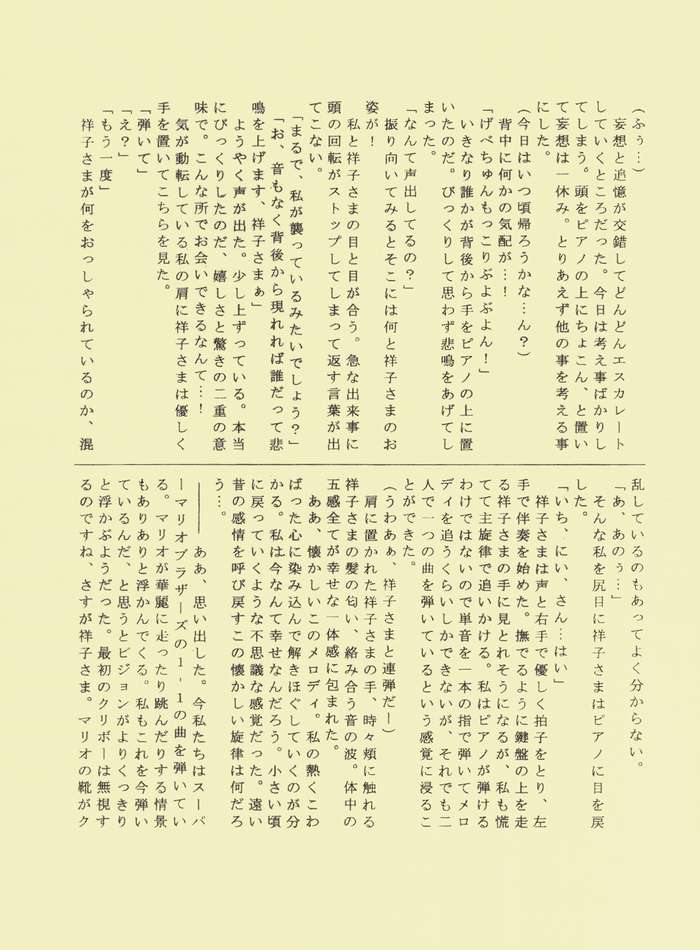 (ふぅ…)
　妄想と追憶が交錯してどんどんエスカレート
していくところだった。今日は考え事ばかりし
てしまう。頭をピアノの上にちょこん、と置い
て妄想は一休み。とりあえず他の事を考える事
にした。
(今日はいつ頃帰ろうかな…ん？)
　背中に何かの気配が…！
「げべちゅんもっこりぷよぷよん！」
　いきなり誰かが背後から手をピアノの上に置
いたのだ。びっくりして思わず悲鳴をあげてし
まった。
「なんて声出してるの？」
　振り向いてみるとそこには何と祥子さまのお
姿が！
　私と祥子さまの目と目が合う。急な出来事に
頭の回転がストップしてしまって返す言葉が出
てこない。
「まるで、私が襲っているみたいでしょう？」
「お、音もなく背後から現れれば誰だって悲
鳴を上げます、祥子さまぁ」
　ようやく声が出た。少し上ずっている。本当
にびっくりしたのだ、嬉しさと驚きの二重の意
味で。こんな所でお会いできるなんて…！
　気が動転している私の肩に祥子さまは優しく
手を置いてこちらを見た。
「弾いて」
「え？」
「もう一度」
　祥子さまが何をおっしゃられているのか、混
乱しているのもあってよく分からない。
「あ、あのぅ…」
　そんな私を尻目に祥子さまはピアノに目を戻
した。
「いち、にい、さん…はい」
　祥子さまは声と右手で優しく拍子をとり、左
手で伴奏を始めた。撫でるように鍵盤の上を走
る祥子さまの手に見とれそうになるが、私も慌
てて主旋律で追いかける。私はピアノが弾ける
わけではないので単音を一本の指で弾いてメロ
ディを追うくらいしかできないが、それでも二
人で一つの曲を弾いているという感覚に浸るこ
とができた。
(うわあぁ、祥子さまと連弾だー)
　肩に置かれた祥子さまの手、時々頬に触れる
祥子さまの髪の匂い、絡み合う音の波。体中の
五感全てが幸せな一体感に包まれた。
　ああ、懐かしいこのメロディ。私の熱くこわ
ばった心に染み込んで解きほぐしていくのが分
かる。私は今なんて幸せなんだろう。小さい頃
に戻っていくような不思議な感覚だった。遠い
昔の感情を呼び戻すこの懐かしい旋律は何だろ
う…。
――――　ああ、思い出した。今私たちはスーパ
ーマリオブラザーズの１‐１の曲を弾いてい
る。マリオが華麗に走ったり跳んだりする情景
もありありと浮かんでくる。私もこれを今弾い
ているんだ、と思うとビジョンがよりくっきり
と浮かぶようだった。最初のクリボーは無視す
るのですね、さすが祥子さま。マリオの靴がク